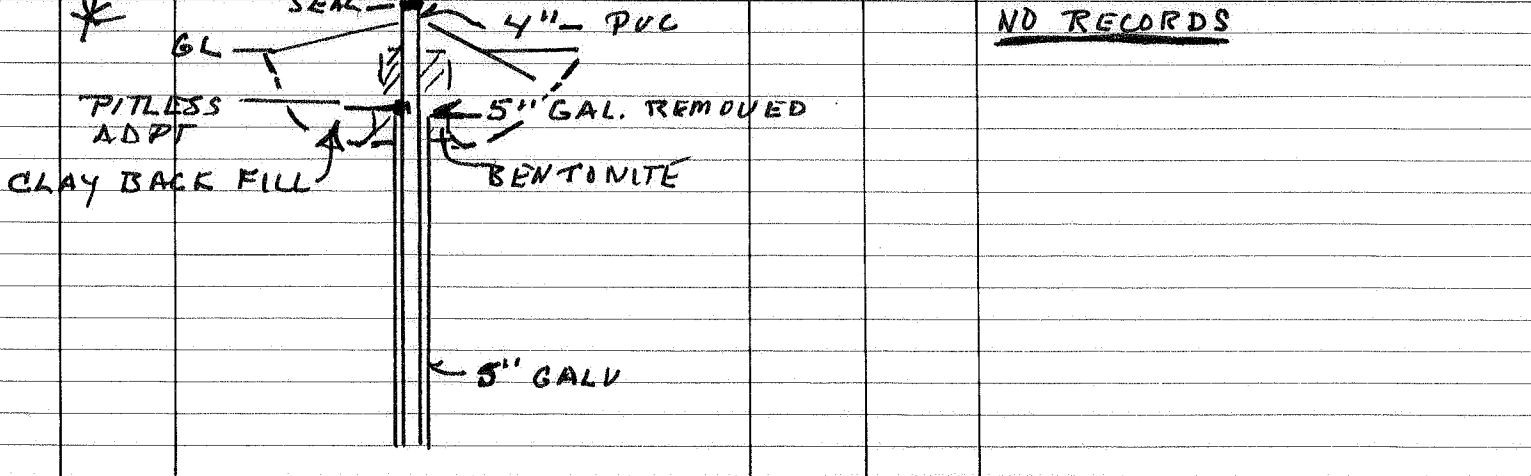 SEAL
4" PVC
NO RECORDS
GL
PITLESS
ADPT
5" GAL. REMOVED
CLAY BACK FILL
BENTONITE
5" GALV